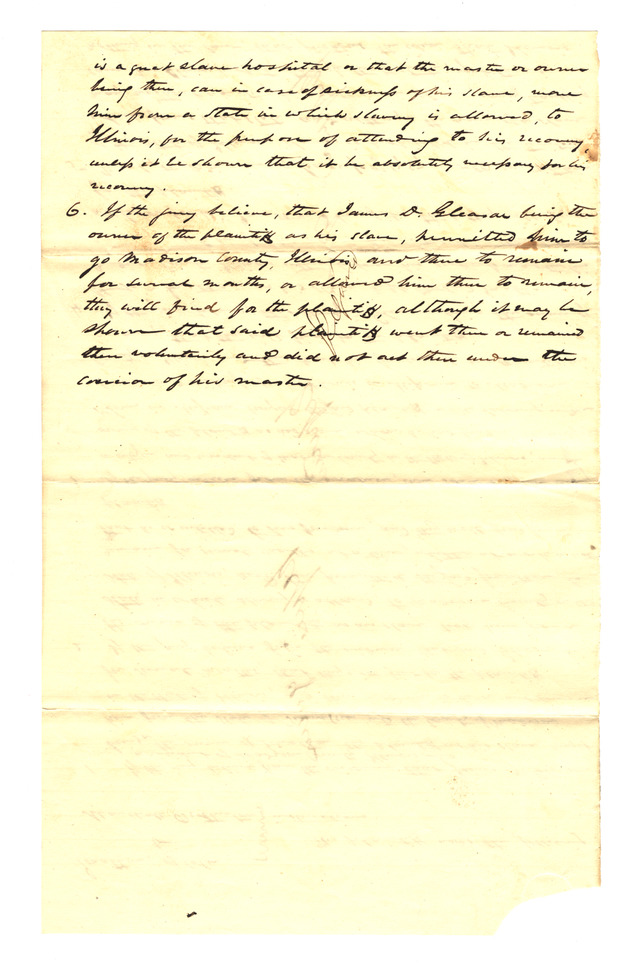 is a great slave hospital or that the master or owner
being there, can in case of sickness of his slave, move
him from a state in which slavery is allowed, to
Illinois, for the purpose of attending to his recovery,
unless it be shown that it be absolutely necessary for his
recovery.
6. If the jury believe, that James D. Gleason being the
owner of the plaintiff as his slave, permitted him to
go Madison County, Illinois and there to remain
for several months, or allowed him there to remain,
they will find for the plaintiff, although it may be
shown that said plaintiff went there or remained
there voluntarily and did not act there under the
coercion of his master.